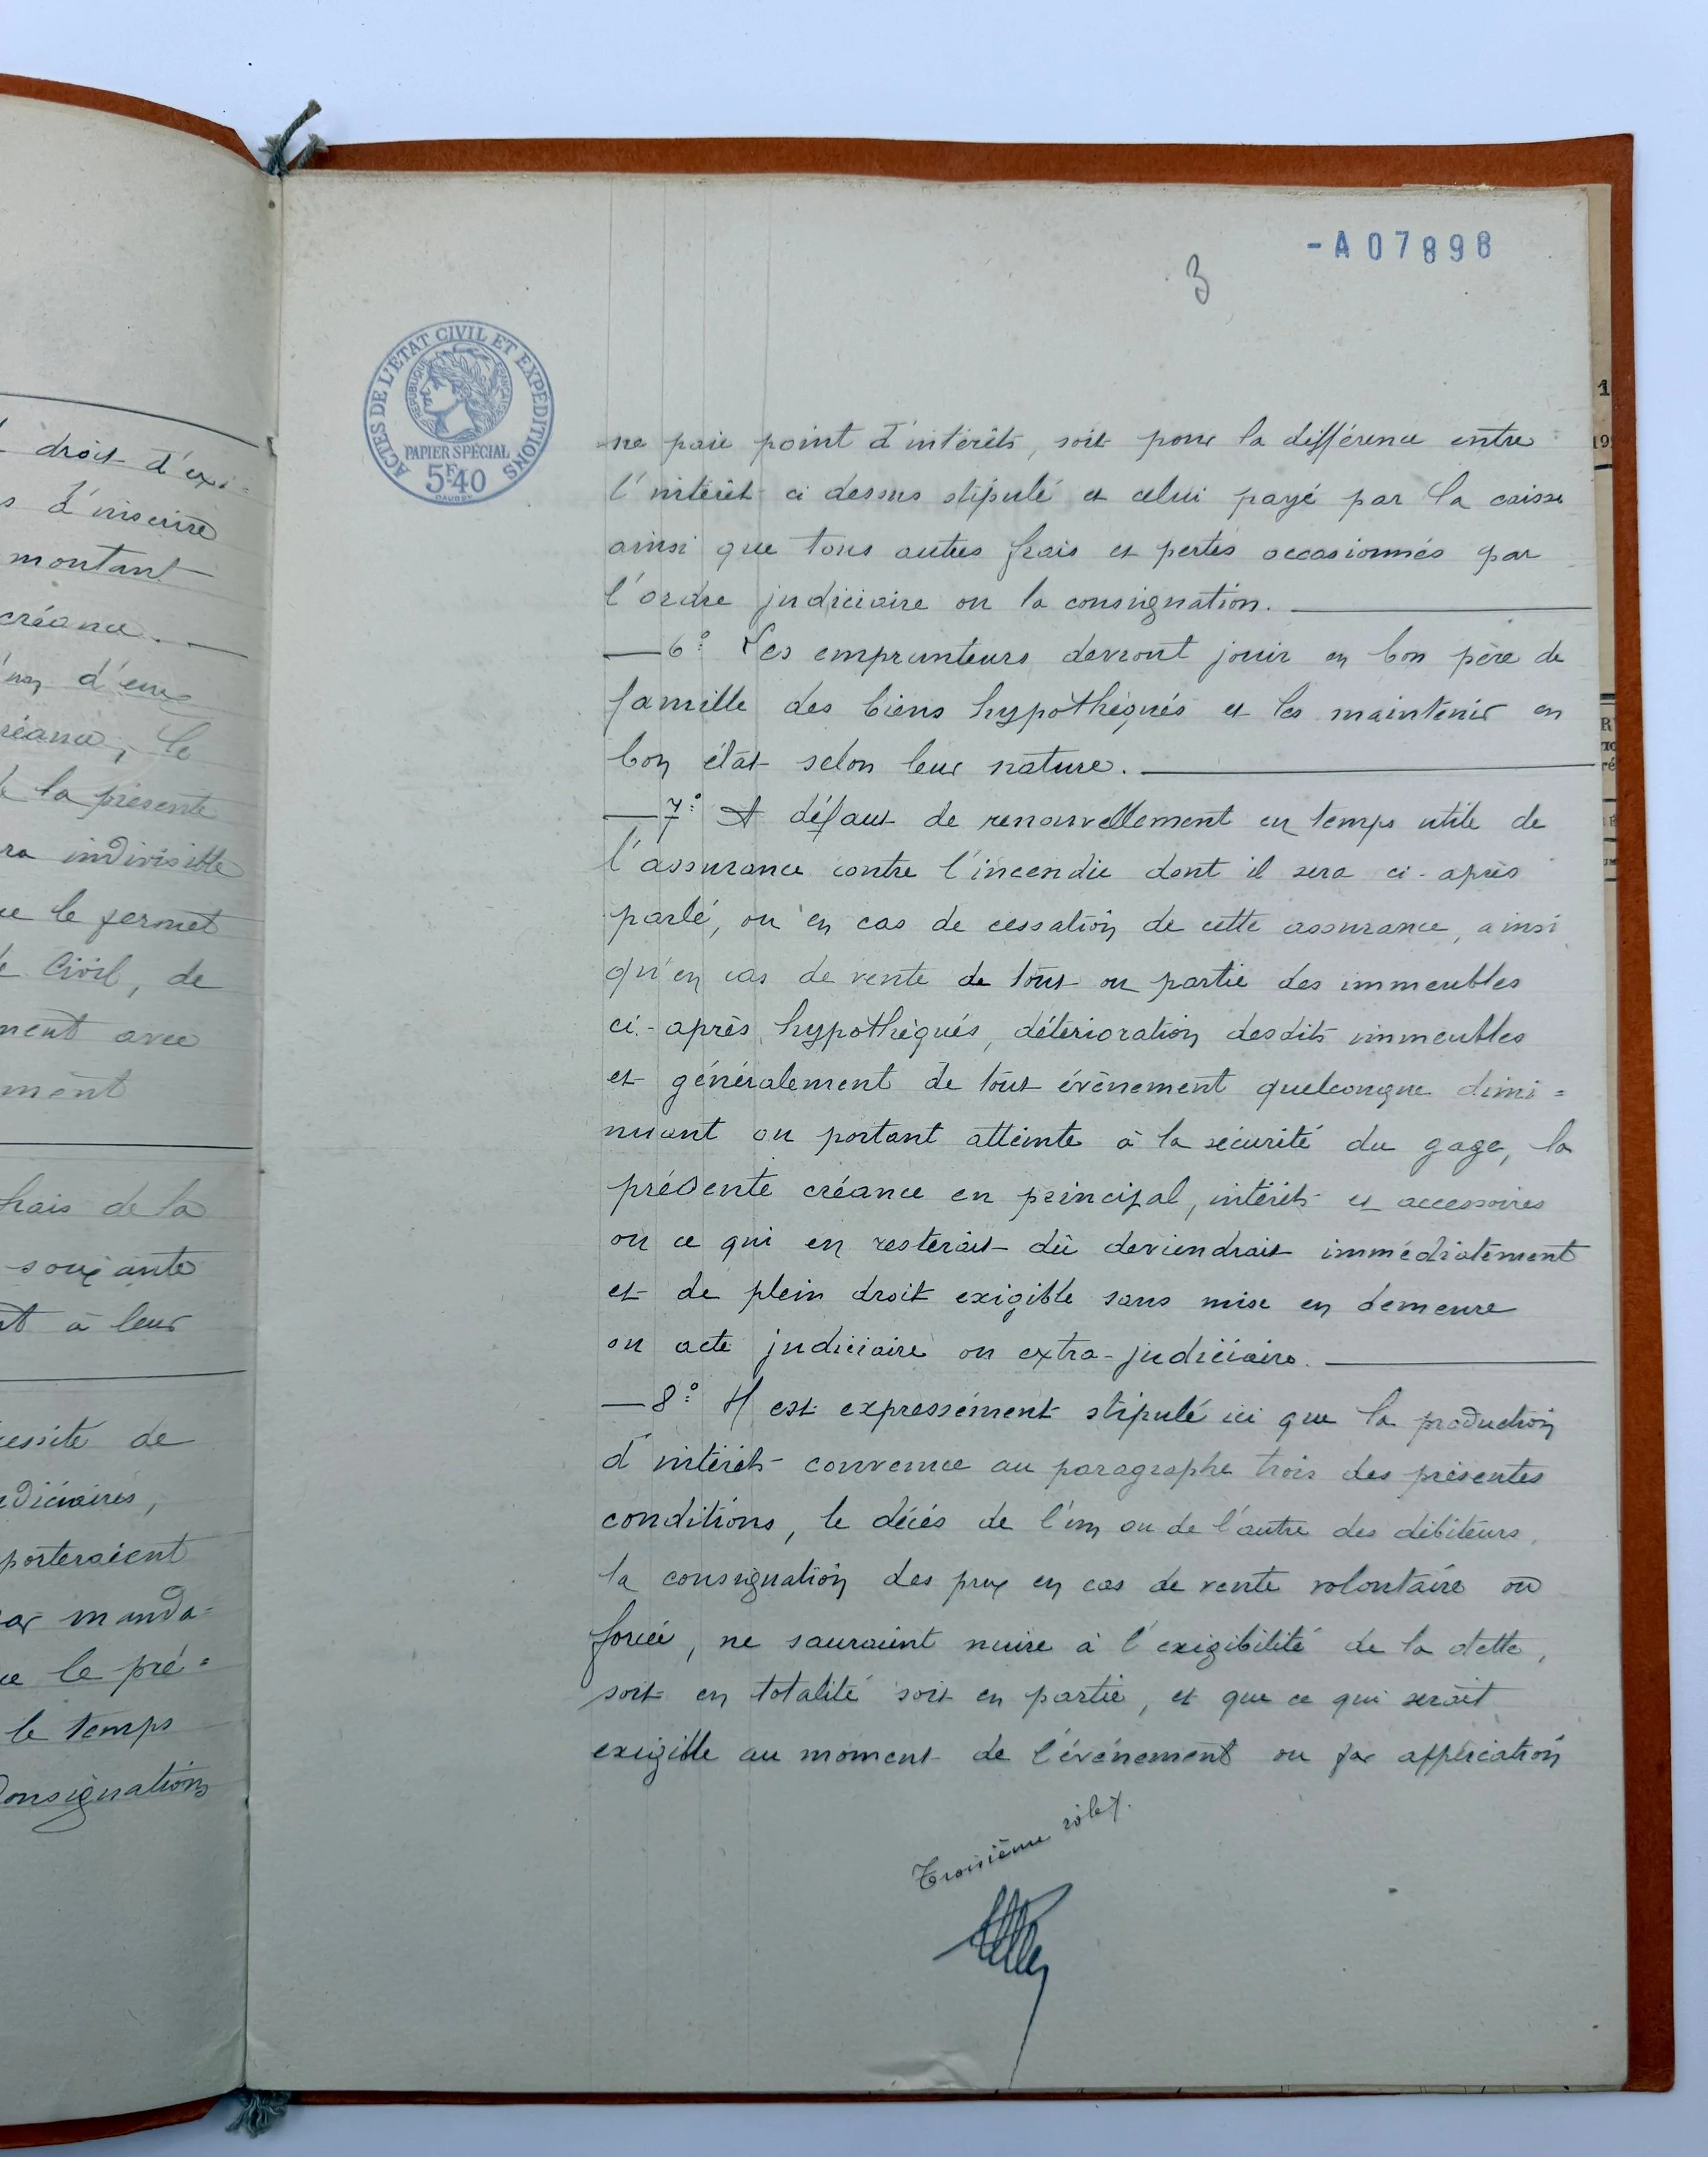 droit d'exi=
s d'inscrire
montant
créance.
d'eux
le
la présente
indivisible
le permet
Civil, de
avec
frais de la
soixante
à leur
de
porteraient
manda=
le pré=
le temps
Consignations
-A07898
3
ACTES DE L'ÉTAT CIVIL ET EXPÉDITIONS
RÉPUBLIQUE FRANÇAISE
PAPIER SPÉCIAL
5F40
ne paie point d'intérêts, soit pour la différence entre
l'intérêt ci dessus stipulé et celui payé par la caisse
ainsi que tous autres frais et pertes occasionnés par
l'ordre judiciaire ou la consignation.
6° Les emprunteurs devront jouir en bon père de
famille des biens hypothéqués et les maintenir en
bon état selon leur nature.
7° A défaut de renouvellement en temps utile de
l'assurance contre l'incendie dont il sera ci-après
parlé, ou en cas de cessation de cette assurance, ainsi
qu'en cas de vente de tout ou partie des immeubles
ci-après hypothéqués, détérioration desdits immeubles
et généralement de tout évènement quelconque dimi=
nuant ou portant atteinte à la sécurité du gage, la
présente créance en principal, intérêts et accessoires
ou ce qui en resterait dû deviendrait immédiatement
et de plein droit exigible sans mise en demeure
ou acte judiciaire ou extra-judiciaire.
8° Il est expressément stipulé ici que la production
d'intérêts convenue au paragraphe trois des présentes
conditions, le décès de l'un ou de l'autre des débiteurs,
la consignation des prix en cas de vente volontaire ou
forcée, ne sauraient nuire à l'exigibilité de la dette,
soit en totalité soit en partie, et que ce qui serait
exigible au moment de l'événement ou par application
Troisième rôle